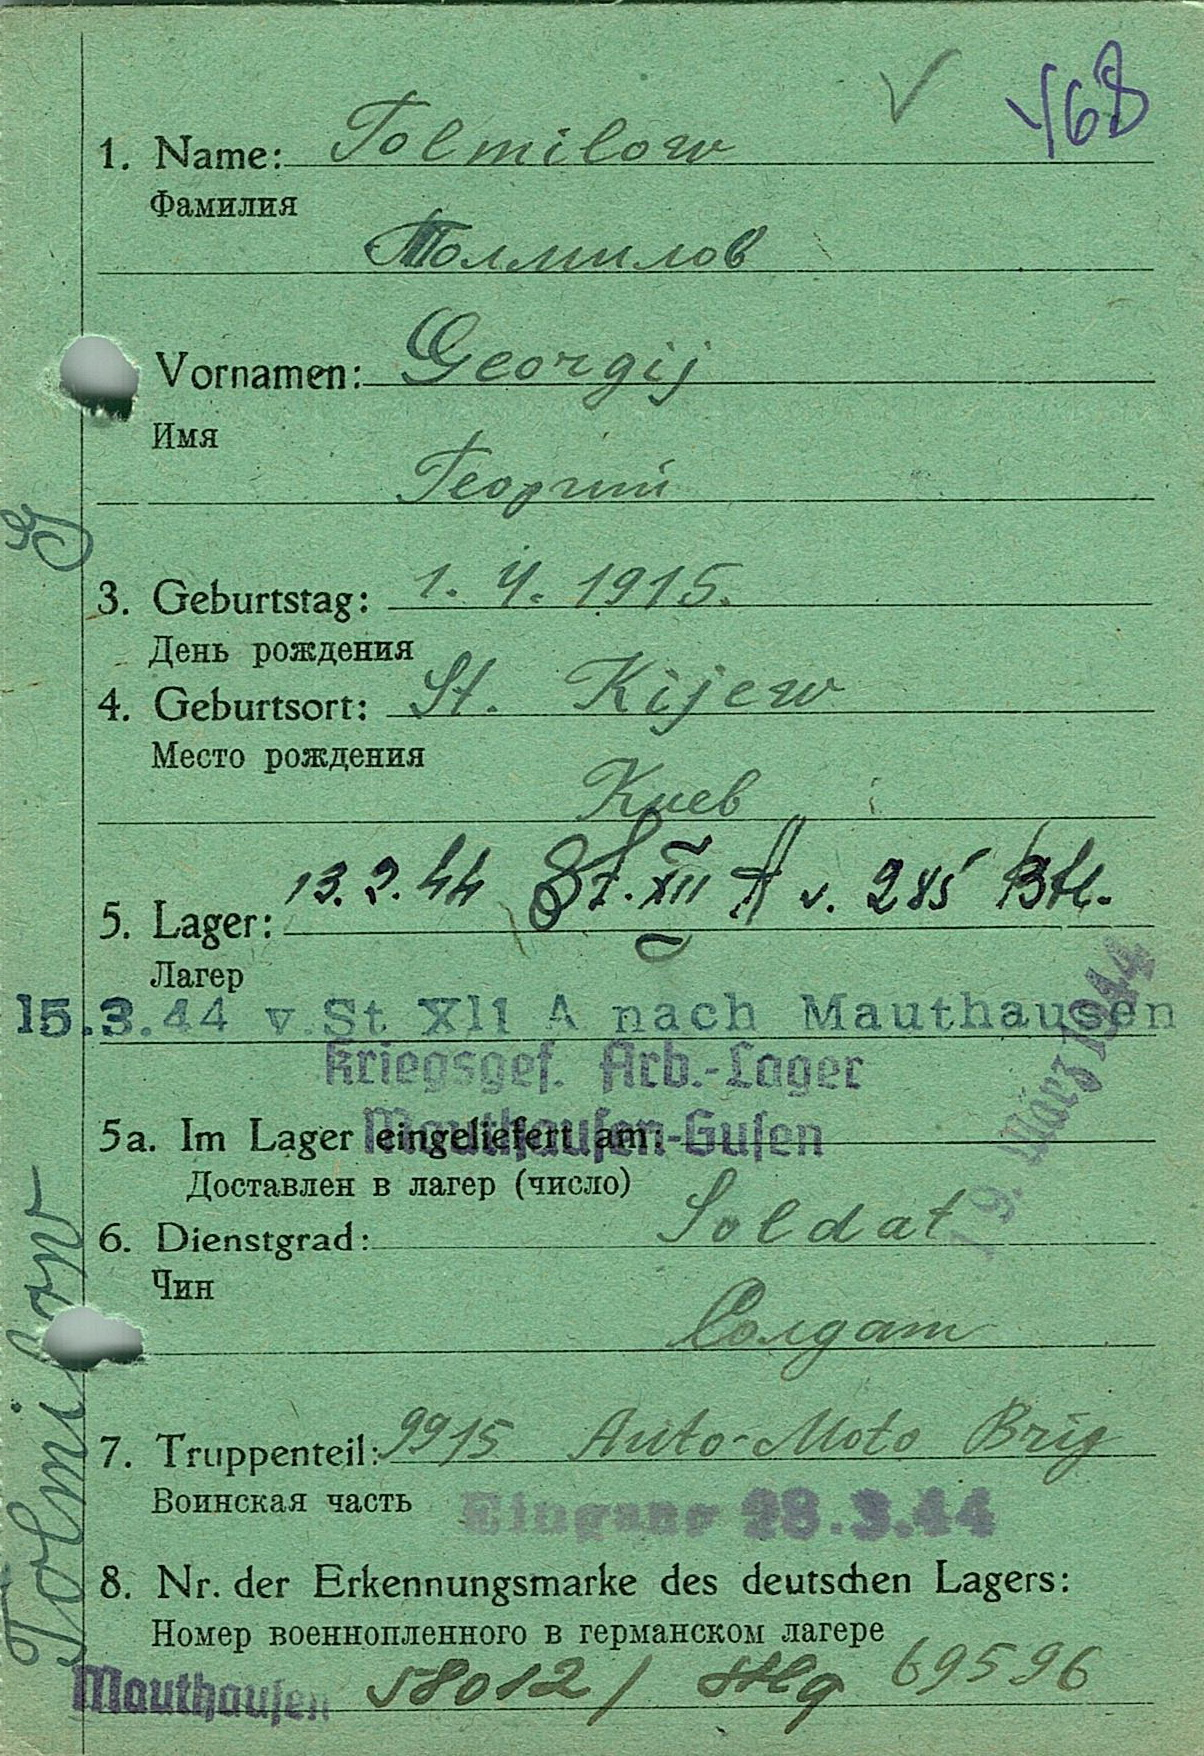 468
1. Name: Tolmilow
Фамилия
Толмилов
Vornamen: Georgij
Имя
Георгий
3. Geburtstag: 1. 4. 1915.
День рождения
4. Geburtsort: St. Kijew
Место рождения
Киев
5. Lager: 13.2.44 St. XII A v. 285 Btl.
Лагер
15.3.44 v.St XII A nach Mauthausen
Kriegsgef. Arb.-Lager
Mauthausen-Gusen
19. März 1944
5a. Im Lager eingeliefert am:
Доставлен в лагер (число)
6. Dienstgrad: Soldat
Чин
Солдат
7. Truppenteil: 9915 Auto-Moto Brig
Воинская часть
Eingang 28.3.44
8. Nr. der Erkennungsmarke des deutschen Lagers:
Номер военнопленного в германском лагере
Mauthausen 58012 / 69596
Tolmilow